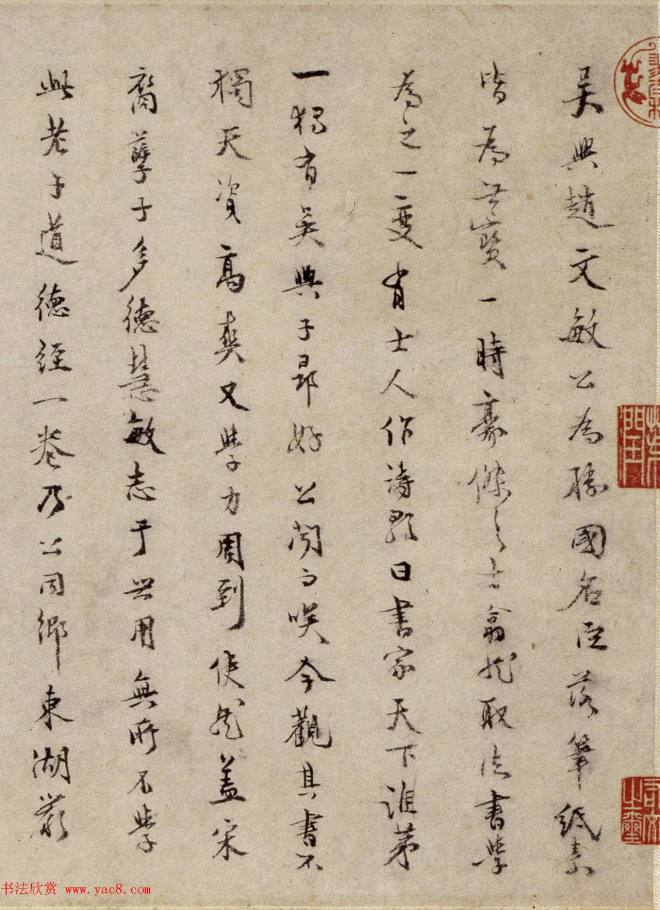 吳興趙文敏公為勝國名臣落筆紙素
皆為世寶一時豪傑之士翕然取法書學
為之一變有士人作詩頌曰書家天下誰第
一獨有吳興子昂好公聞而笑今觀其書不
獨天資高爽又學力周到使然蓋宋
裔孽子多德慧敏志于世用無所不學
此老子道德經一卷乃公同鄉東湖嚴
书法欣赏 www.yac8.com